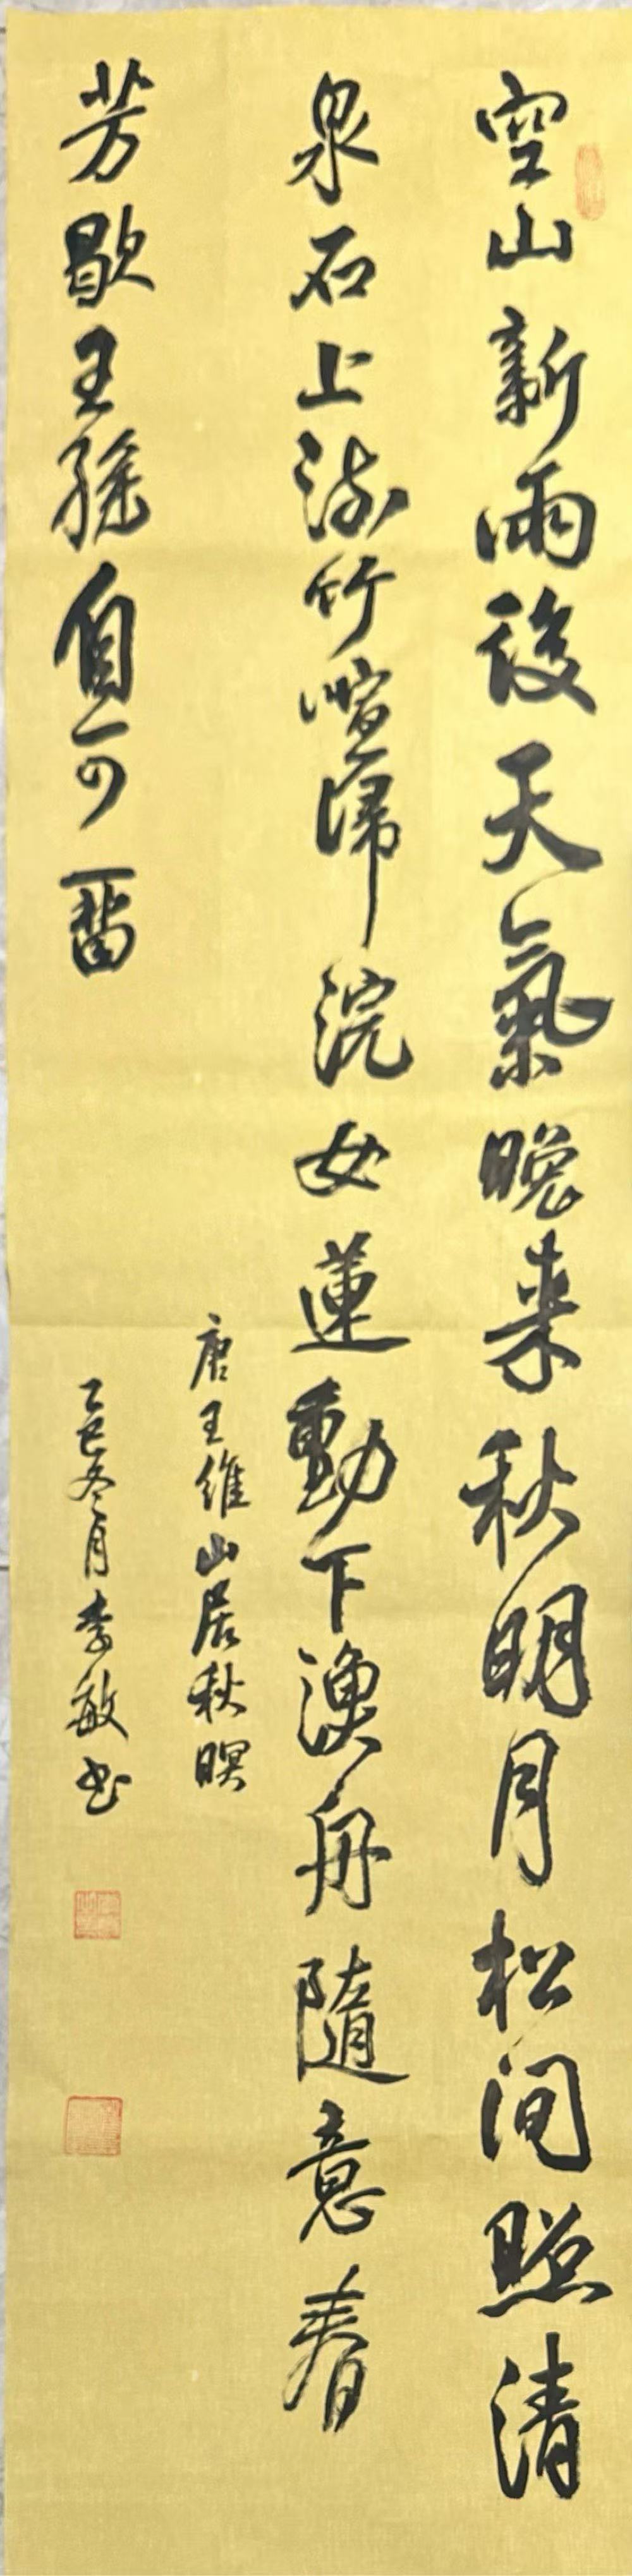 空山新雨後天氣晚来秋明月松间照清
泉石上流竹喧歸浣女蓮動下漁舟隨意春
芳歇王孫自可留
唐王維山居秋暝
乙巳冬月李敏书